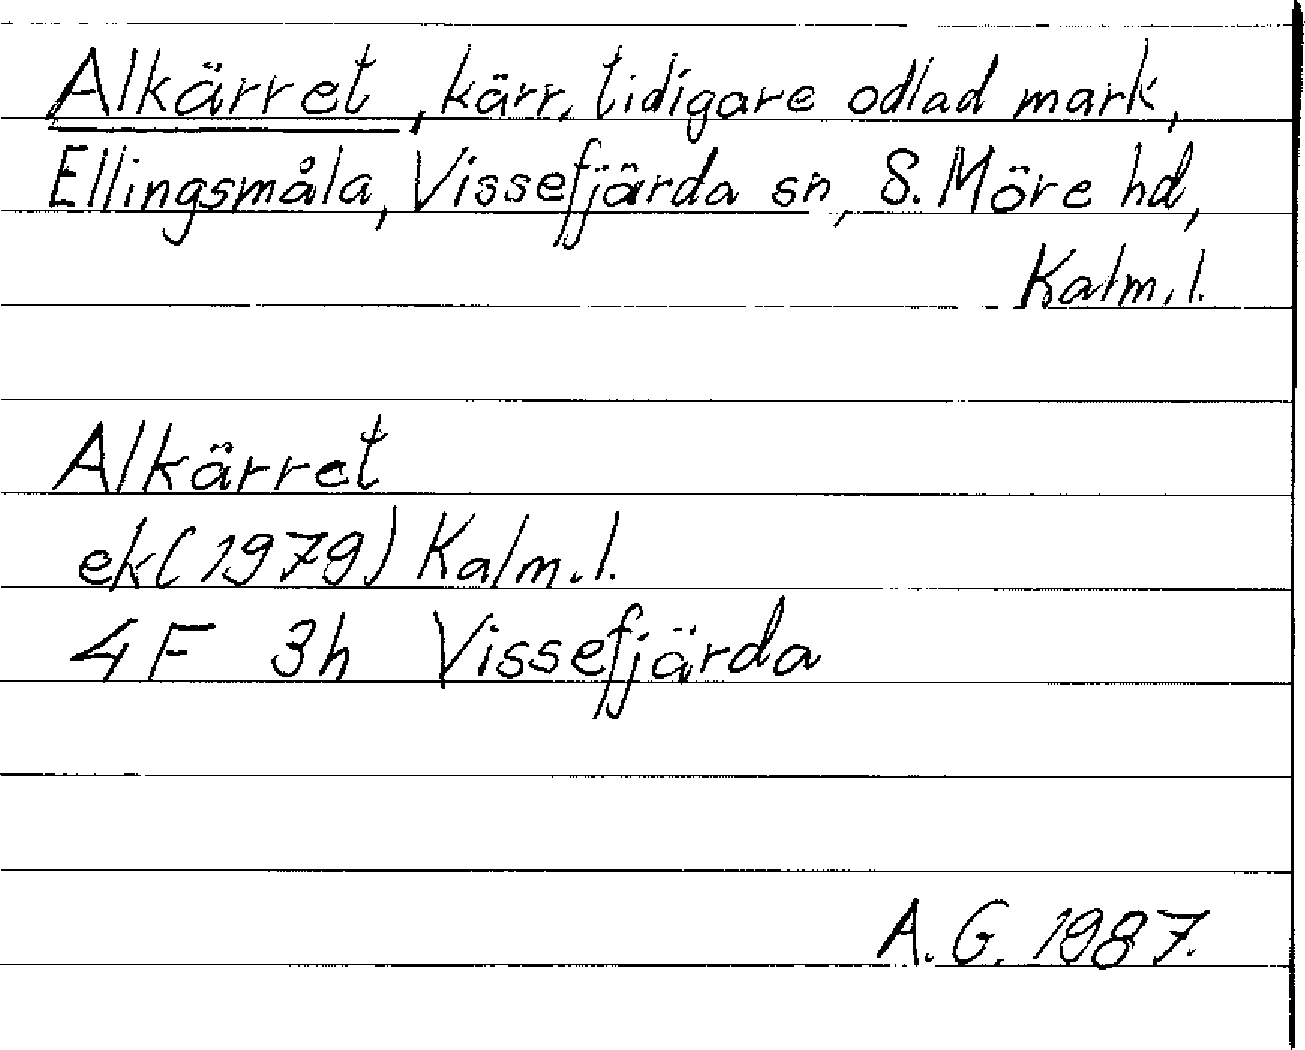 Alkärret, kärr, tidigare odlad mark,
Ellingsmåla, Vissefjärda sn, S. Möre hd,
Kalm. l.
Alkärret
ek (1979) Kalm. l.
4F 3h Vissefjärda
A. G. 1987.